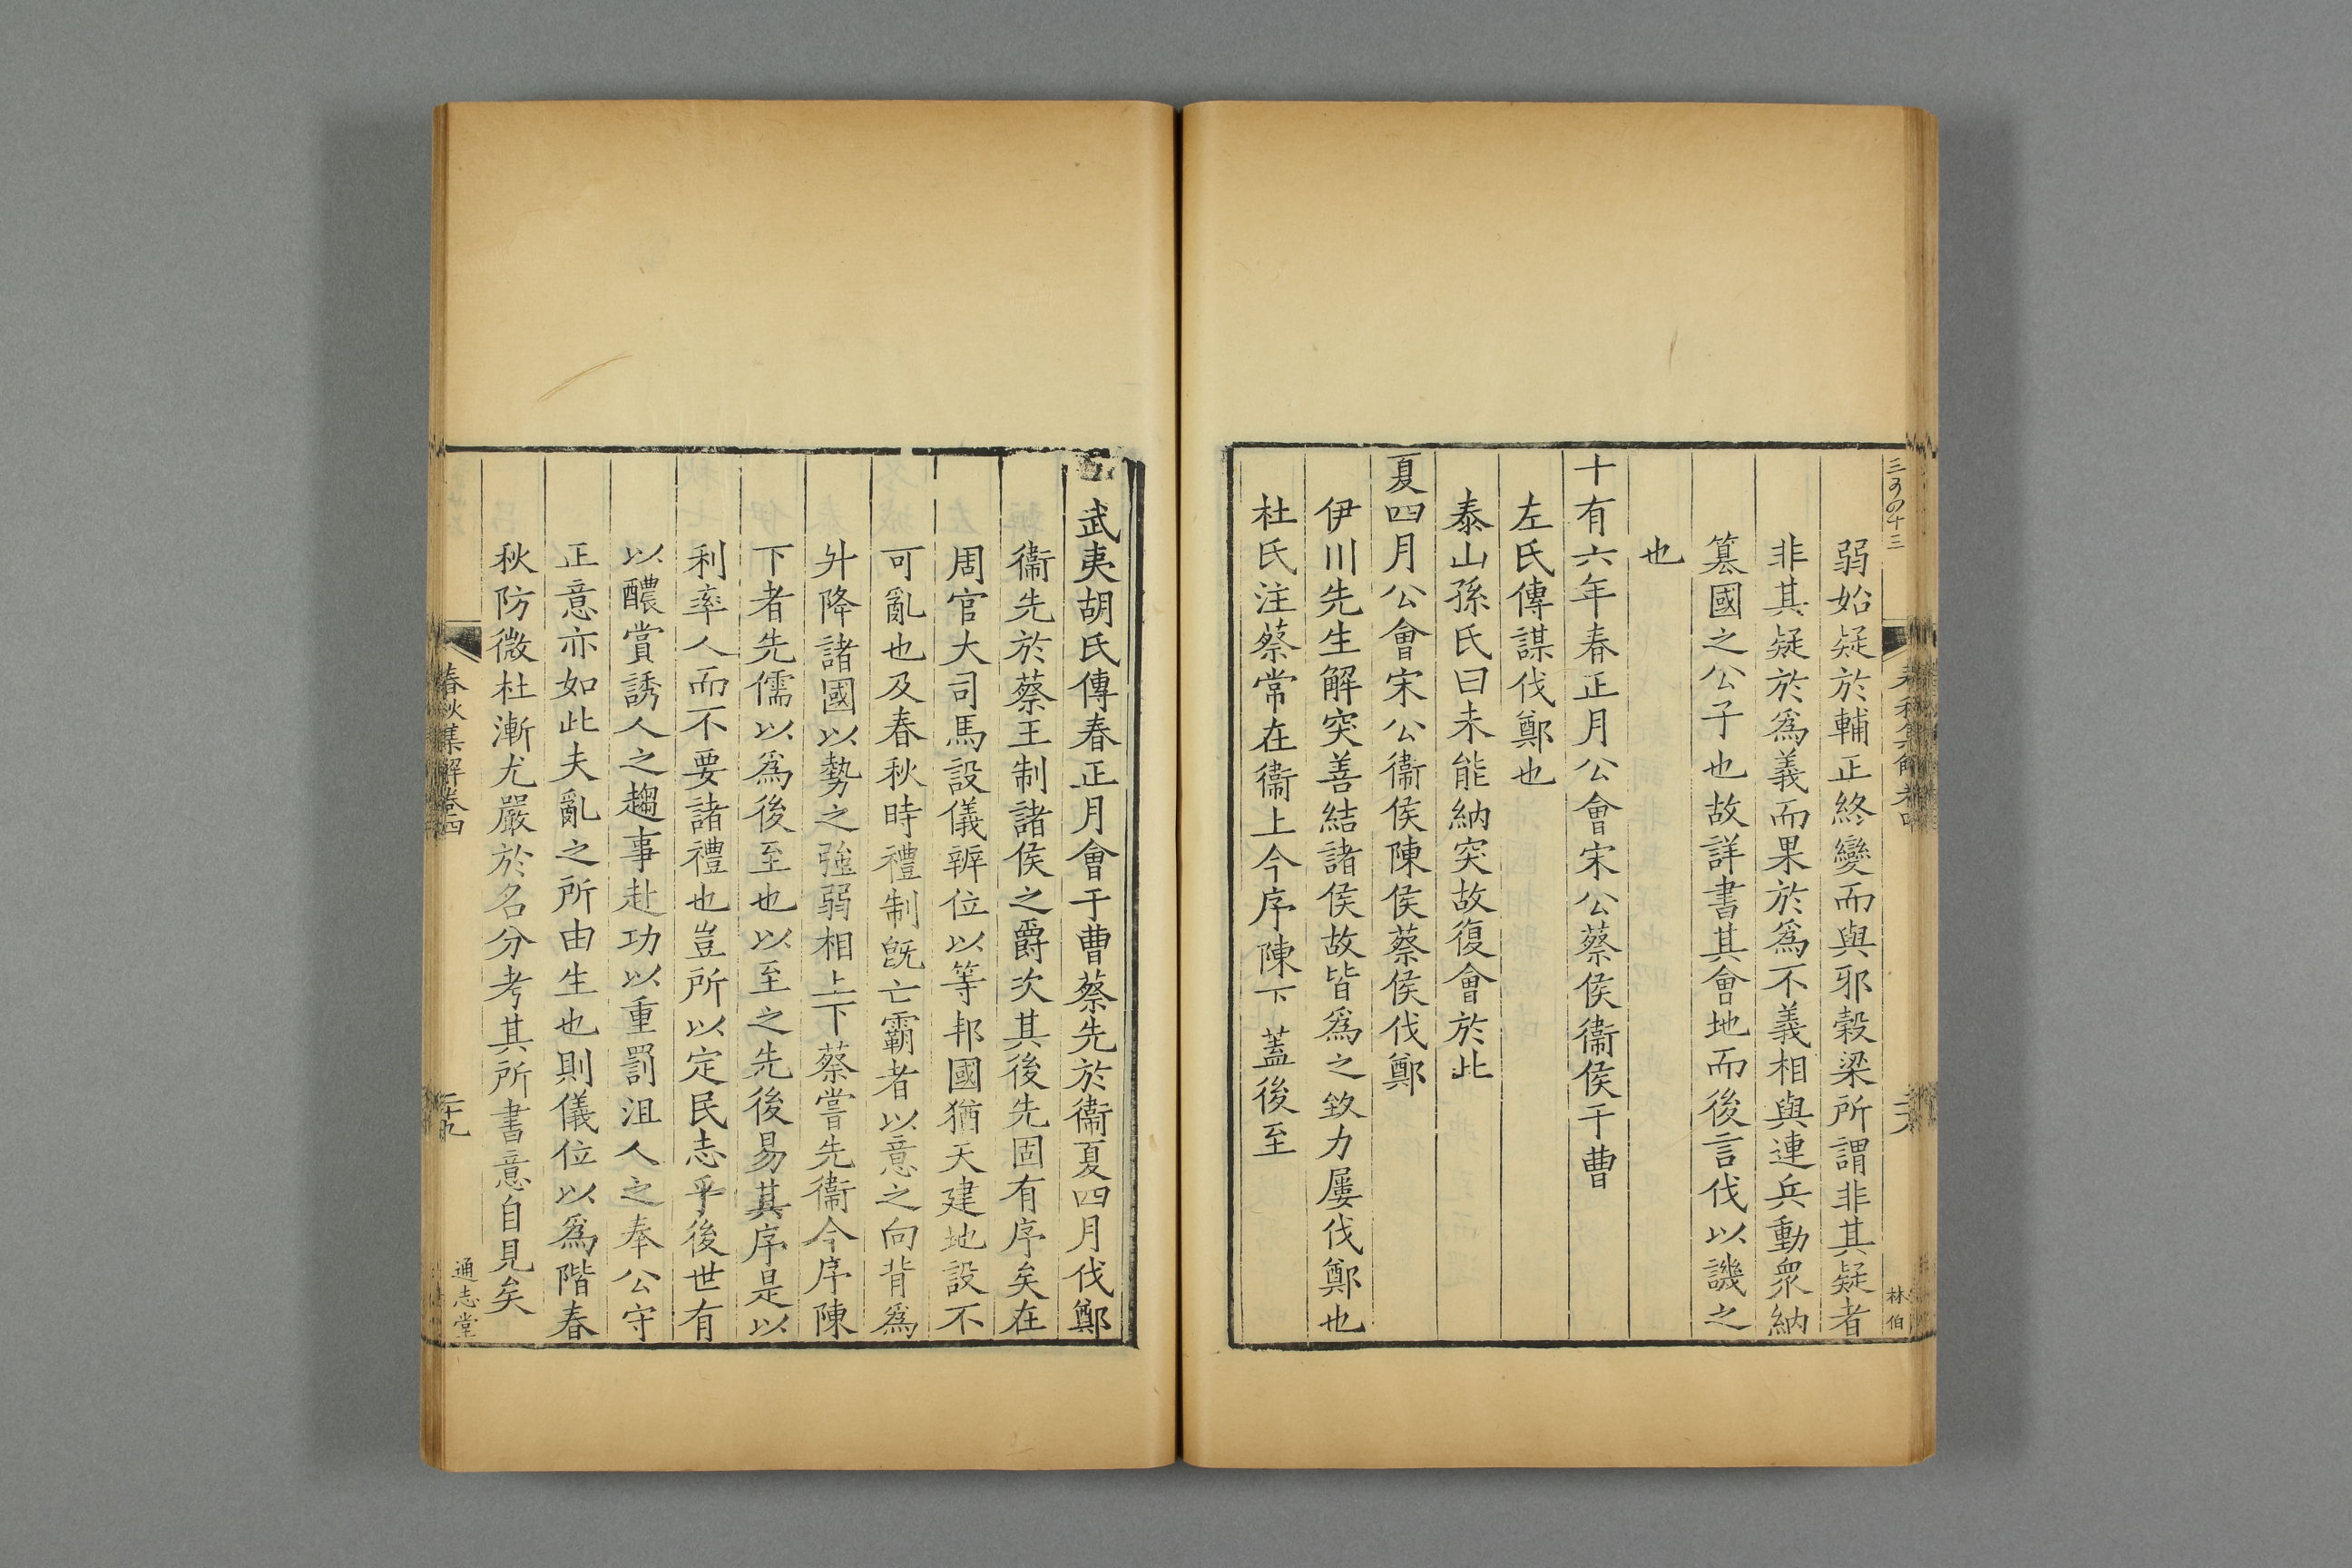 弱始疑於輔正終變而與邪穀梁所謂非其疑者
非其疑於爲義而果於爲不義相與連兵動衆納
簒國之公子也故詳書其會地而後言伐以譏之
也
十有六年春正月公會宋公蔡侯衞侯于曹
左氏傳謀伐鄭也
泰山孫氏曰未能納突故復會於此
夏四月公會宋公衞侯陳侯蔡侯伐鄭
伊川先生解突善結諸侯故皆爲之致力屢伐鄭也
杜氏注蔡常在衞上今序陳下蓋後至
林伯
武夷胡氏傳春正月會于曹蔡先於衞夏四月伐鄭
衞先於蔡王制諸侯之爵次其後先固有序矣在
周官大司馬設儀辨位以等邦國猶天建地設不
可亂也及春秋時禮制旣亡霸者以意之向背爲
升降諸國以勢之强弱相上下蔡嘗先衞今序陳
下者先儒以爲後至也以至之先後易其序是以
利率人而不要諸禮也豈所以定民志乎後世有
以醲賞誘人之趨事赴功以重罰沮人之奉公守
正意亦如此夫亂之所由生也則儀位以爲階春
秋防微杜漸尤嚴於名分考其所書意自見矣
春秋集解卷四
二十九
通志堂